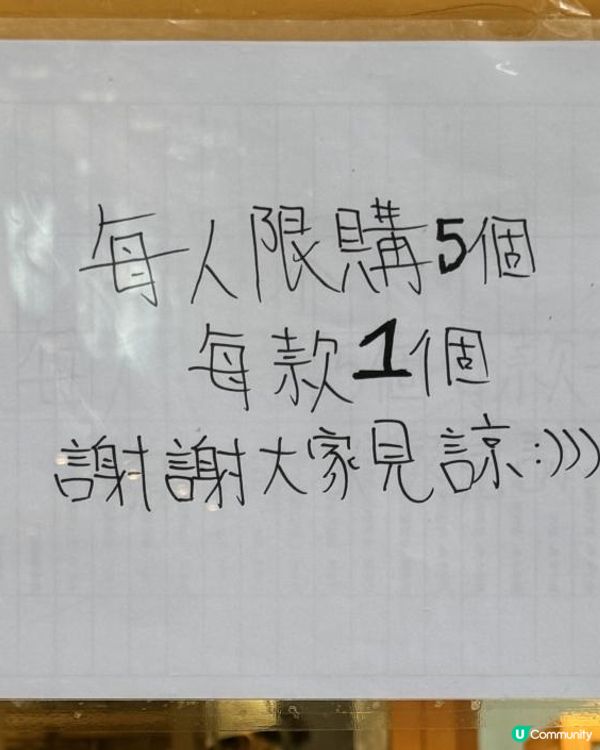 每人限購5個
每款1個
謝謝大家見諒:)))
U Community